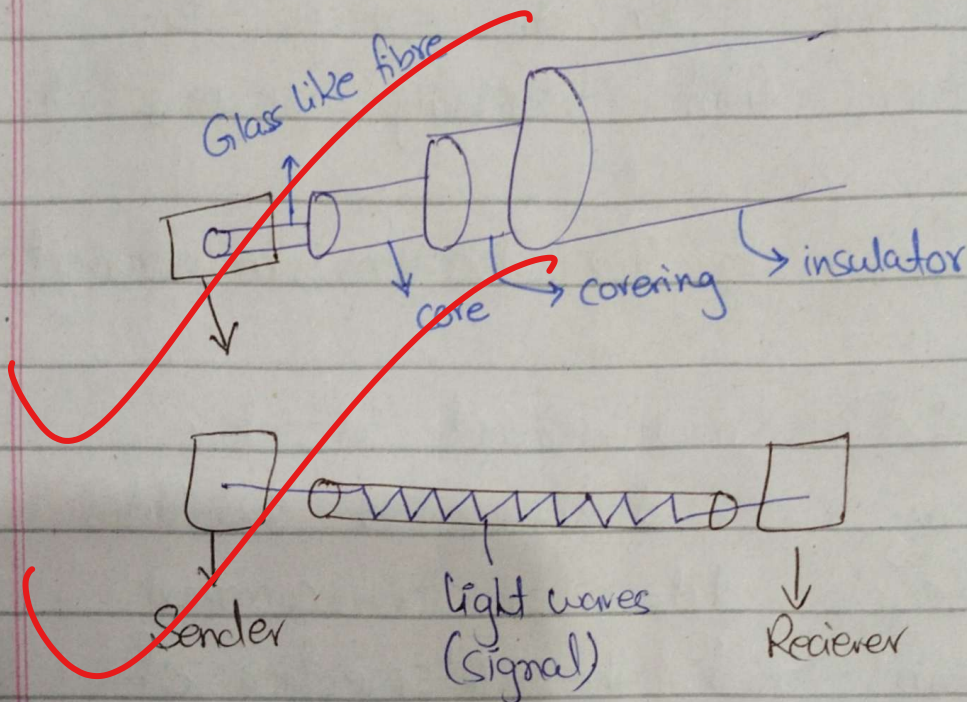 Glass like fibre
core
covering
insulator
Sender
light waves
(signal)
Reciever